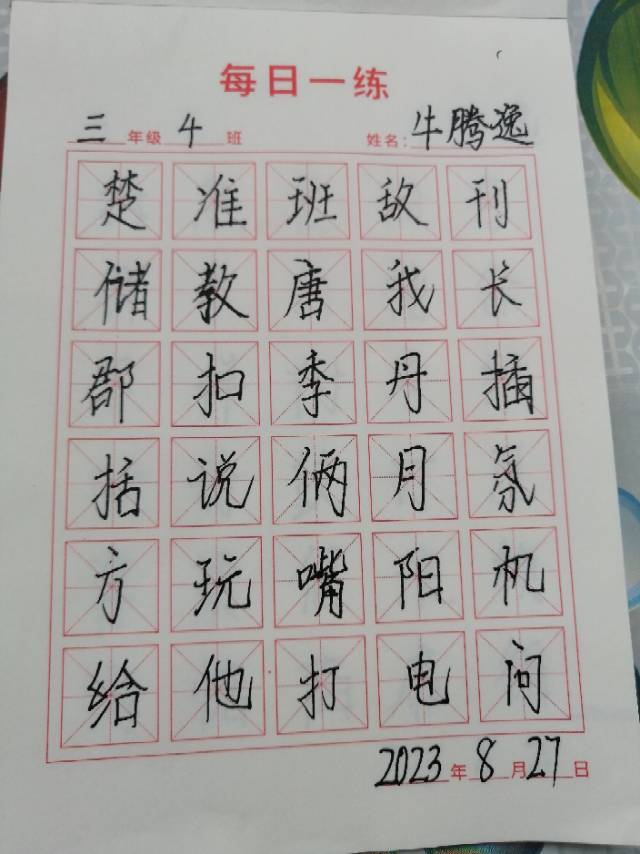 每日一练
三年级4班 姓名:牛腾逸
楚准班敌刊
储教唐我长
郡扣季丹插
括说俩月氛
方玩嘴阳机
给他打电问
2023年8月27日